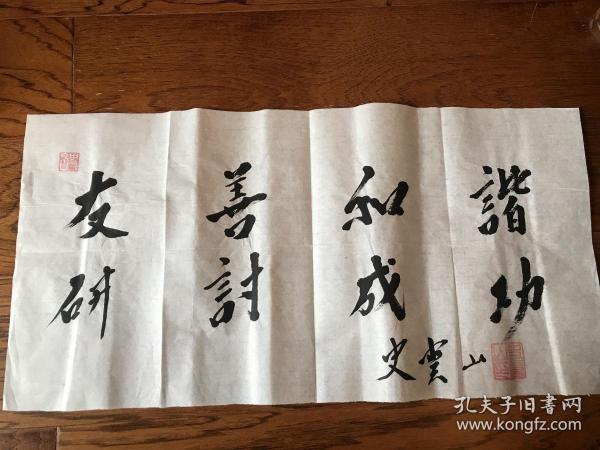 友善和諧
研討成功
史 山
孔夫子旧書网
www.kongfz.com